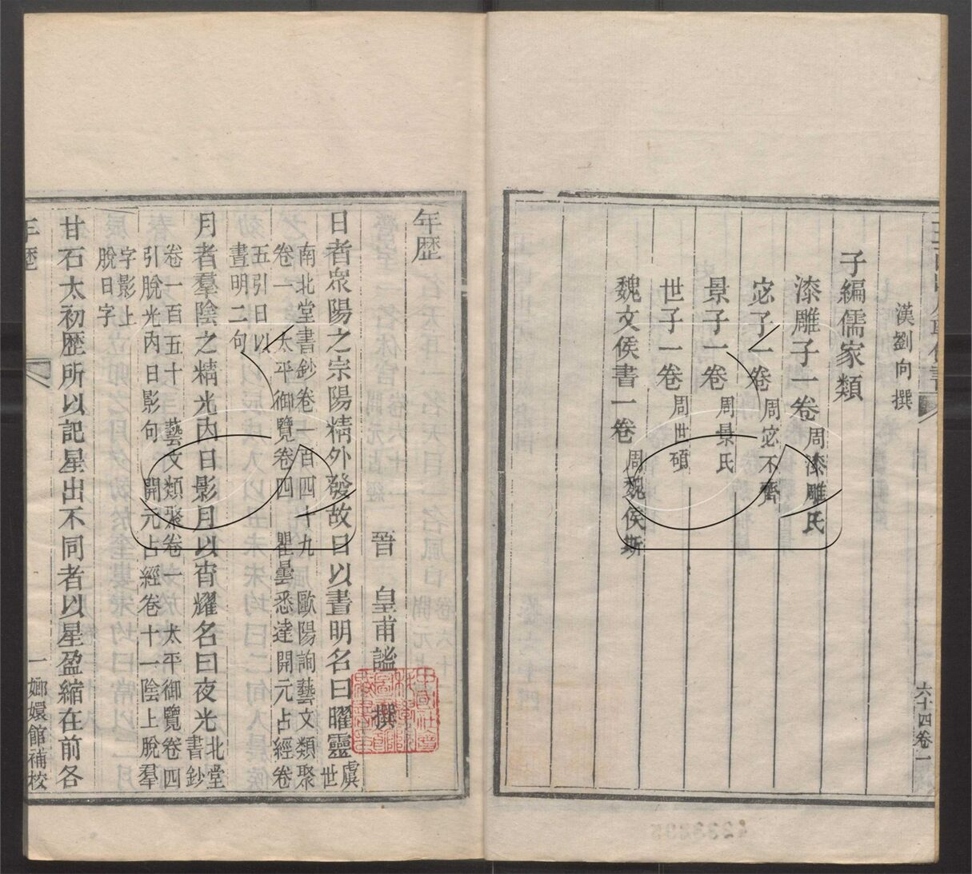 漢劉向撰
子編儒家類
漆雕子一卷周漆雕氏
宓子一卷周宓不齊
景子一卷周景氏
世子一卷周世碩
魏文侯書一卷周魏侯斯
六十四卷一
年歷
晉 皇甫謐 撰
日者衆陽之宗陽精外發故日以晝明名曰曜靈虞世
南北堂書鈔卷一百四十九 歐陽詢藝文類聚
卷一 太平御覽卷四 瞿曇悉達開元占經卷
五引日以
晝明二句
月者羣陰之精光內日影月以宵耀名曰夜光北堂書鈔
卷一百五十 藝文類聚卷一 太平御覽卷四
引脫光內日影句 開元占經卷十一陰上脫羣
字影上
脫日字
甘石太初歷所以記星出不同者以星盈縮在前各
年歷
一
嫏嬛館補校